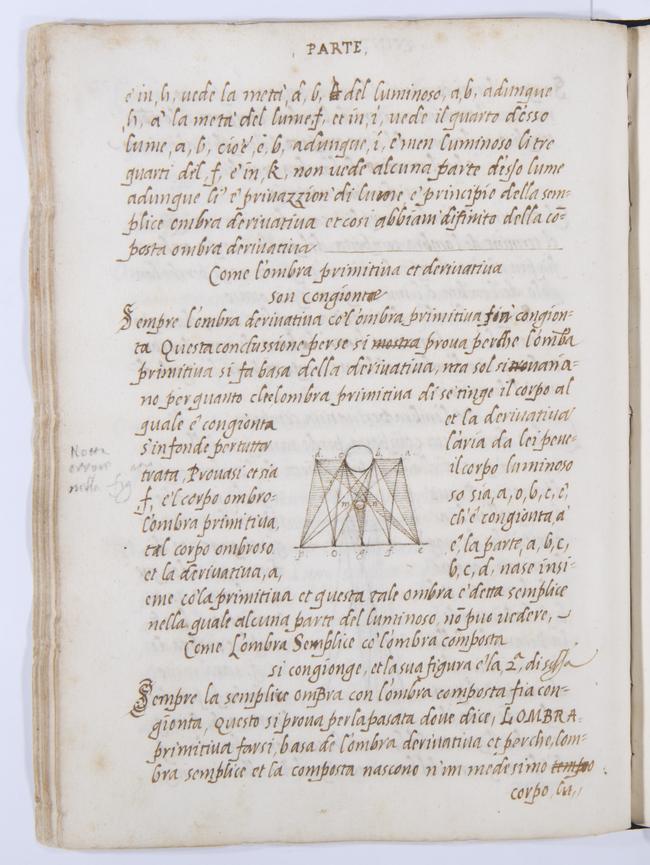 PARTE,
e in, h, vede la metà, d, b, del luminoso, a, b, adunque
h, à la metà del lume, f, et in, i, vede il quarto d'esso
lume, a, b, cioè, e, b, adunque, i, è men luminoso li tre
quarti del, f, e in, k, non vede alcuna parte d'esso lume
adunque li è privazzion di lume e principio della sem=
plice ombra derivativa et così abbiam difinito della cō=
posta ombra derivativa
Come l'ombra primitiva et derivativa
son congionte
Sempre l'ombra derivativa cō l'ombra primitiva fin congion=
ta Questa conclussione per se si mostra prova perche l'ombra
primitiva si fa basa della derivativa, ma sol si a=
no per quanto che l'ombra primitiva di se tinge il corpo al
quale è congionta et la derivativa
s'infonde per tutta l'aria da lei pene=
trata, Provasi et sia il corpo luminoso
f, e'l corpo ombro= so sia, a, o, b, c, e,
l'ombra primitiva, ch'è congionta, a
tal corpo ombroso è la parte, a, b, c,
et la derivativa, a, b, c, d, nase insi=
eme cō la primitiva et questa tale ombra è detta semplice
nella quale alcuna parte del luminoso, nō può vedere,
Come L'ombra Semplice cō l'ombra composta
si congionge, et la sua figura è la, 2ª, di
Sempre la semplice ombra con l'ombra composta fia con=
gionta, Questo si prova per la pasata dove dice, LOMBRA
primitiva farsi, basa de l'ombra derivativa et perche, lom=
bra semplice et la composta nascono n'un medesimo tempo
corpo, lu,
Nota
errore
nella fig
d o b a
m n
p o g f e